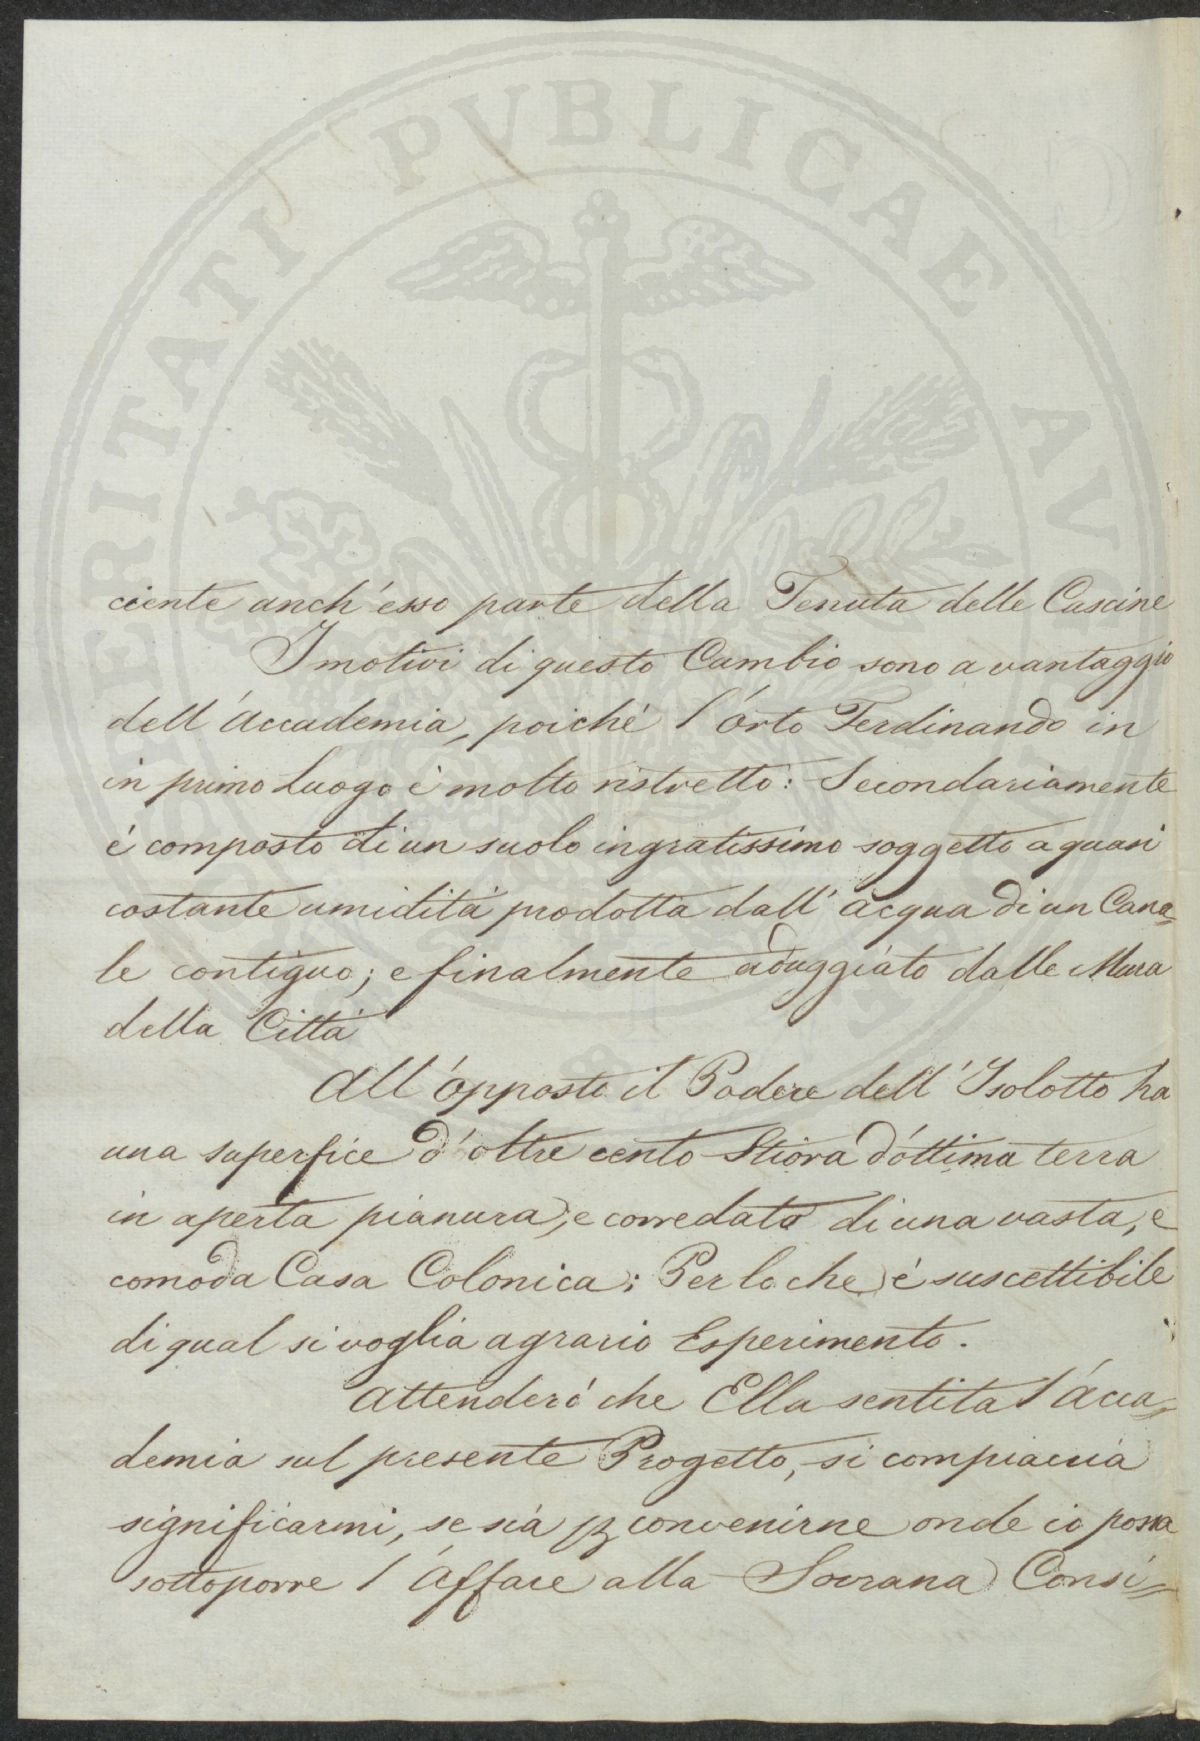 PROSPERITATI PVBLICAE AVGENDAE
ciente anch'esso parte della Tenuta delle Cascine
I motivi di questo Cambio sono a vantaggio
dell'Accademia, poiché l'Orto Ferdinando in
in primo luogo é molto ristretto: Secondariamente
é composto di un suolo ingratissimo soggetto a quasi
costante umidità prodotta dall'acqua di un Cana=
le contiguo; e finalmente aduggiato dalle Mura
della Città
All'opposto il Podere dell'Isolotto ha
una superfice d'oltre cento Stiora d'ottima terra
in aperta pianura, e corredato di una vasta, e
comoda Casa Colonica; Per lo che é suscettibile
di qual si voglia agrario Esperimento.
Attenderó che Ella sentita l'Acca=
demia sul presente Progetto, si compiaccia
significarmi, se sia p convenirne onde io possa
sottoporre l'Affare alla Sovrana Consi=